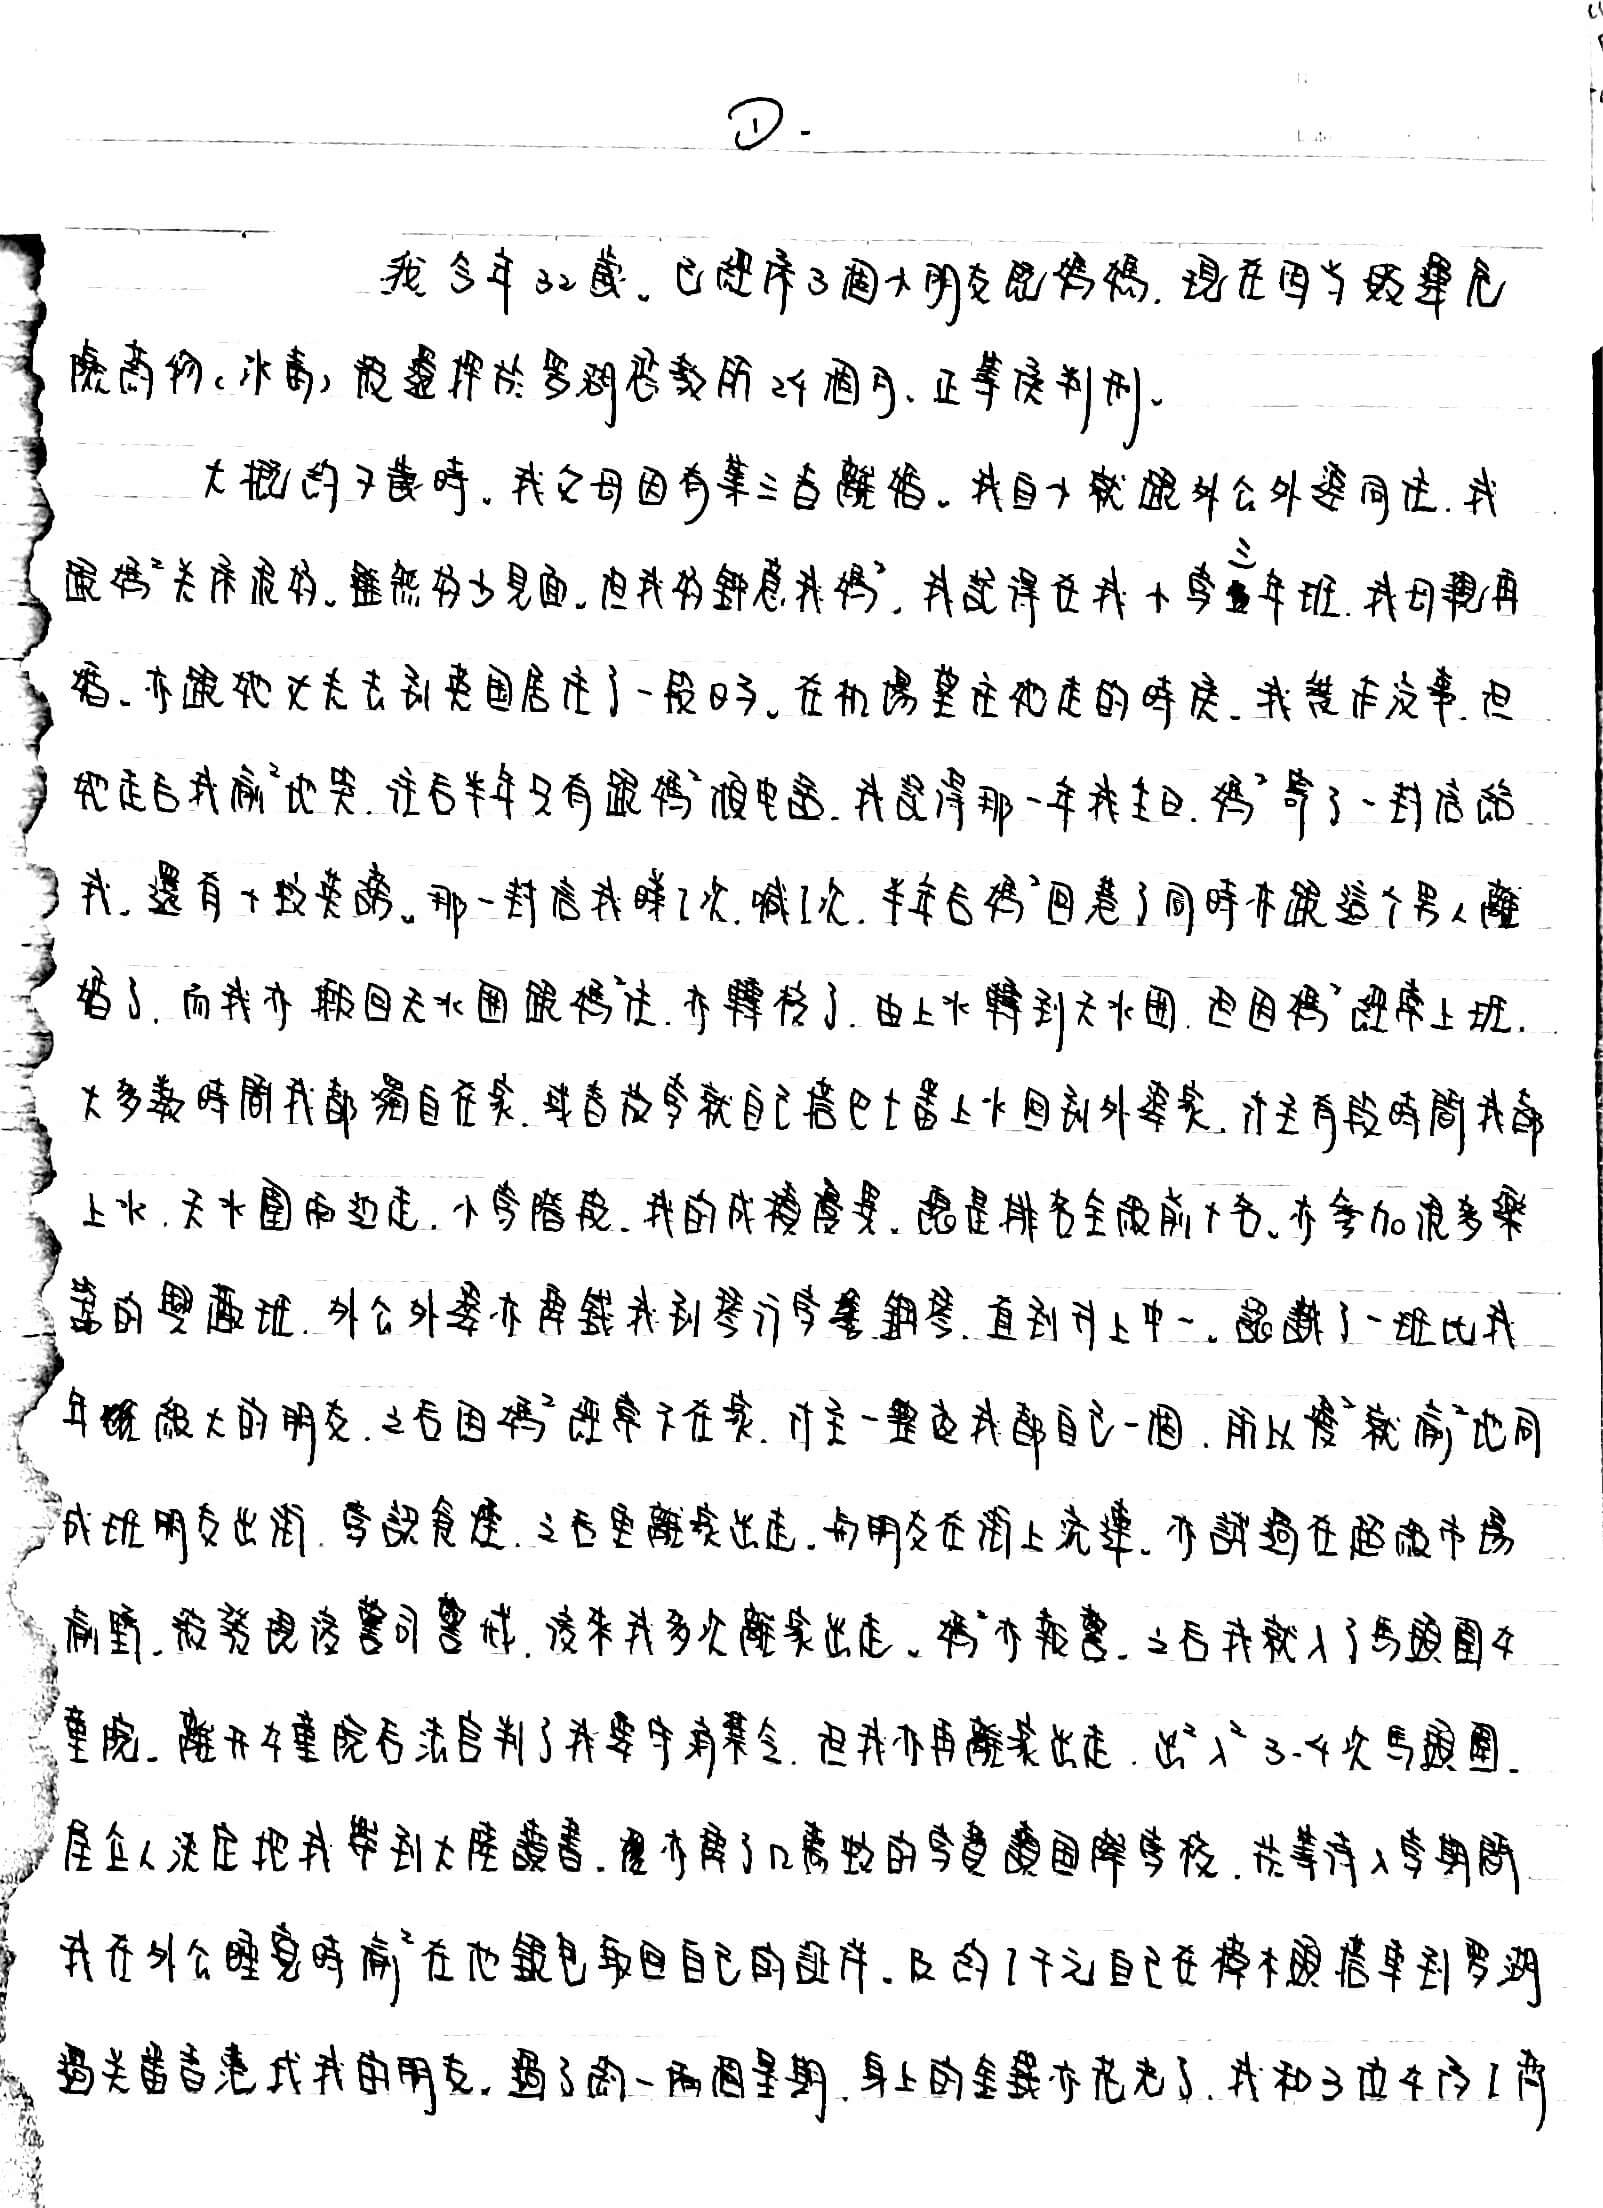 ①.
我今年32歲。已經係3個小朋友既媽媽，現在因為販運危
險藥物（冰毒）被還押於羅湖懲教所24個月、正等侯判刑。
大概約7歲時。我父母因有第三者離婚。我自小就跟外公外婆同住，我
跟媽²关係很好。雖然好少見面。但我好鍾意我媽²，我記得在我小學三年班，我母親再
婚。亦跟她丈夫去到英國居住了一段日子。在机場望住她走的時侯。我裝作沒事，但
她走后我偷²地哭，往后半年只有跟媽²傾电話，我記得那一年我生日，媽²寄了一封信給
我，還有十蚊英鎊。那一封信我睇1次，喊1次，半年后媽²回港了同時亦跟這个男人離
婚了，而我亦搬回天水圍跟媽²住，亦轉校了，由上水轉到天水圍，也因媽²經常上班，
大多數時間我都獨自在家，或者放學就自己搭巴士番上水回到外婆家，什至有段時間我都
上水，天水圍兩边走，小學階段，我的成積優異，總是排名全級前十名、亦參加很多樂
器的興趣班，外公外婆亦俾錢我到琴行學鋼琴，直到升上中一。認識了一班比我
年級大的朋友，之后因媽²經常不在家，什至一整夜我都自己一個，所以慢²就偷²地同
成班朋友出街，學識食煙，之后更離家出走，与朋友在街上流連。亦試過在超級市場
偷野，被發現後警司警戒，後來我多次離家出走。媽²亦報警。之后我就入了馬頭圍女
童院。離开女童院后法官判了我要守宵禁令，但我亦再離家出走，出²入²3-4次馬頭圍。
屋企人決定把我帶到大陸讀書，亦俾了12萬蚊的學費讀国際學校，於等待入學期間
我在外公睡覺時偷²在他銀包取回自己的証件。及約1千元自己在樟木頭搭車到罗湖
過关番香港找我的朋友。過了約一兩個星期，身上的金錢亦花光了，我和3位女仔1齊